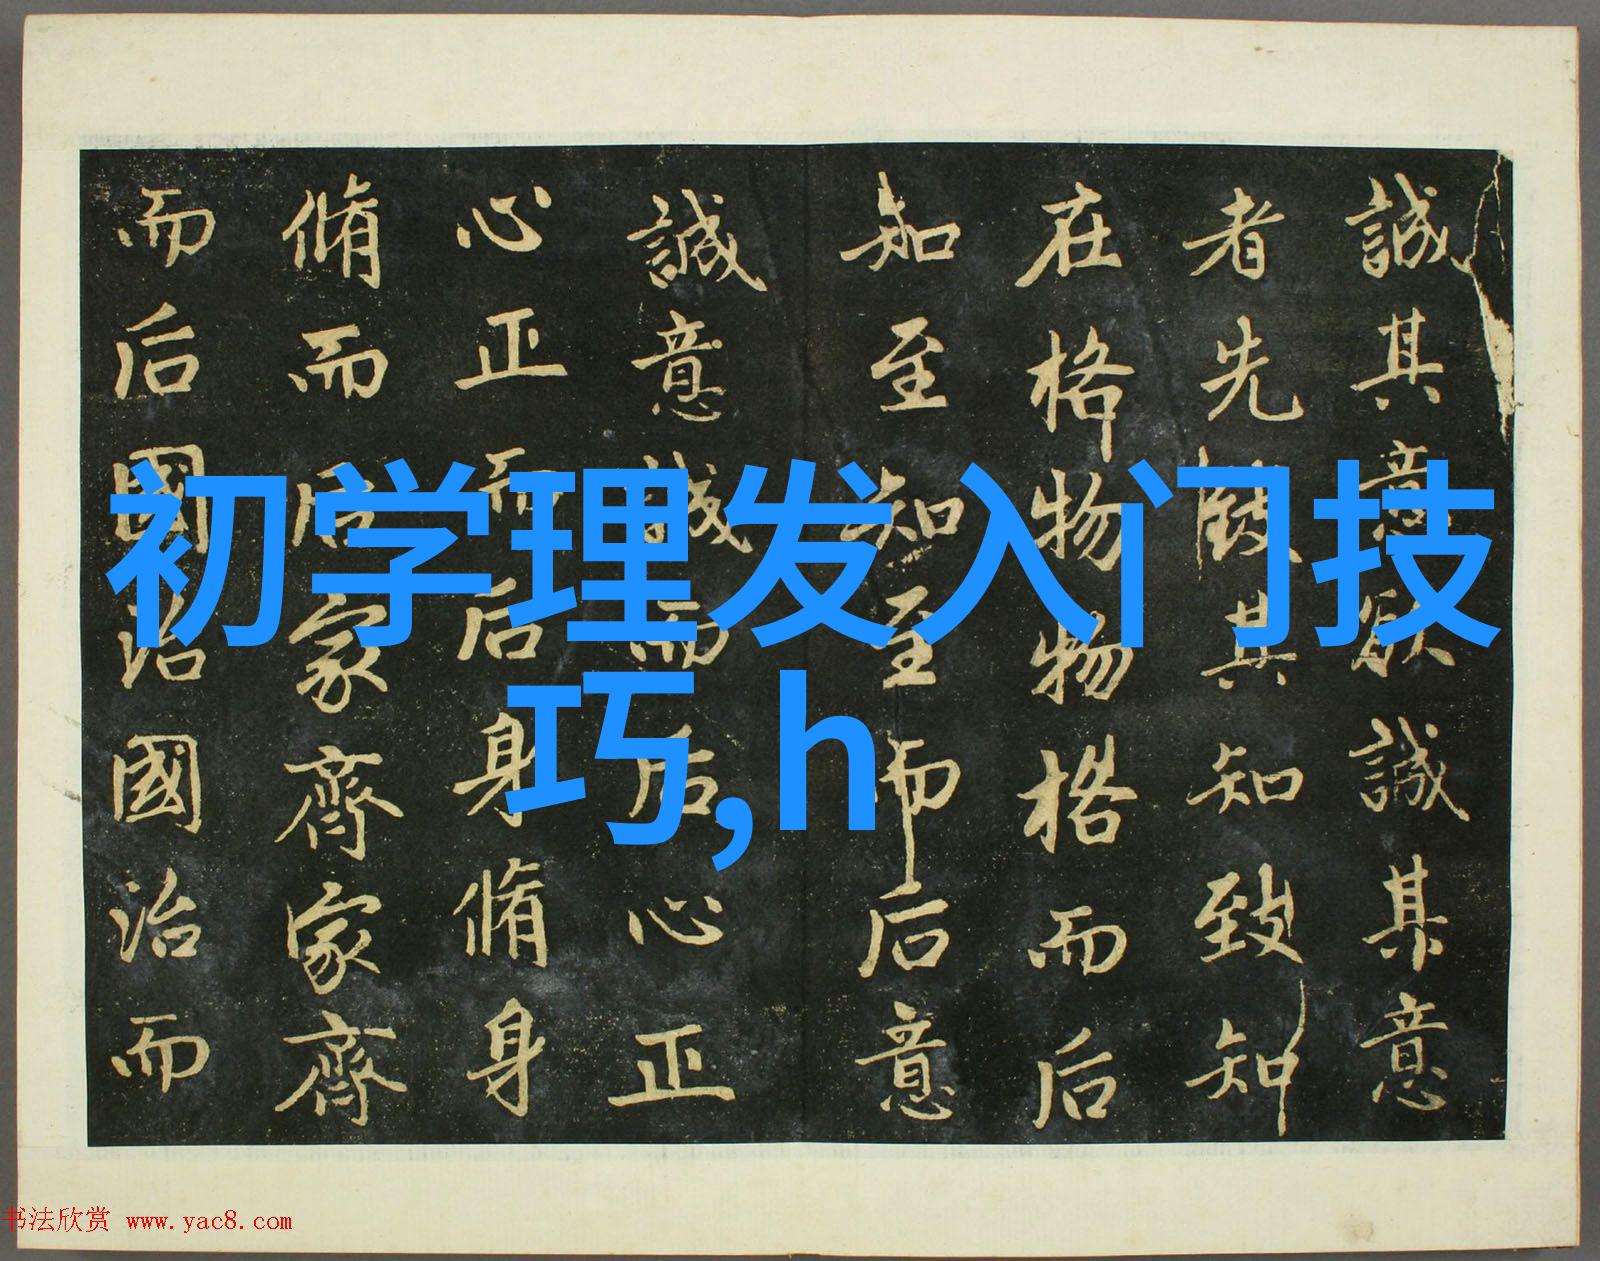 誠其意欲誠其意
者先致其知致知
在格物物格而后
知至知至而后意
誠意誠而后心正
心正而后身脩身
脩而后家齊家齊
而后國治國治而
初学理发入门技
巧,h
书法欣赏 www.yac8.com